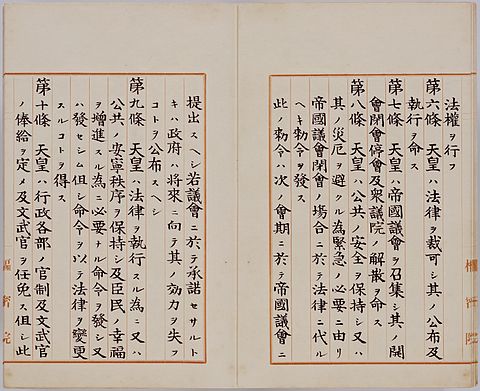 樞密院
法權ヲ行フ
第六條 天皇ハ法律ヲ裁可シ其ノ公布及
執行ヲ命ス
第七條 天皇ハ帝國議會ヲ召集シ其ノ開
會閉會停會及衆議院ノ解散ヲ命ス
第八條 天皇ハ公共ノ安全ヲ保持シ又ハ
其ノ災厄ヲ避クル為緊急ノ必要ニ由リ
帝國議會閉會ノ場合ニ於テ法律ニ代ル
ヘキ勅令ヲ發ス
此ノ勅令ハ次ノ會期ニ於テ帝國議會ニ
提出スヘシ若議會ニ於テ承諾セサルト
キハ政府ハ將來ニ向テ其ノ効力ヲ失フ
コトヲ公布スヘシ
第九條 天皇ハ法律ヲ執行スル為ニ又ハ
公共ノ安寧秩序ヲ保持シ及臣民ノ幸福
ヲ増進スル為ニ必要ナル命令ヲ發シ又
ハ發セシム但シ命令ヲ以テ法律ヲ變更
スルコトヲ得ス
第十條 天皇ハ行政各部ノ官制及文武官
ノ俸給ヲ定メ及文武官ヲ任免ス但シ此
樞密院